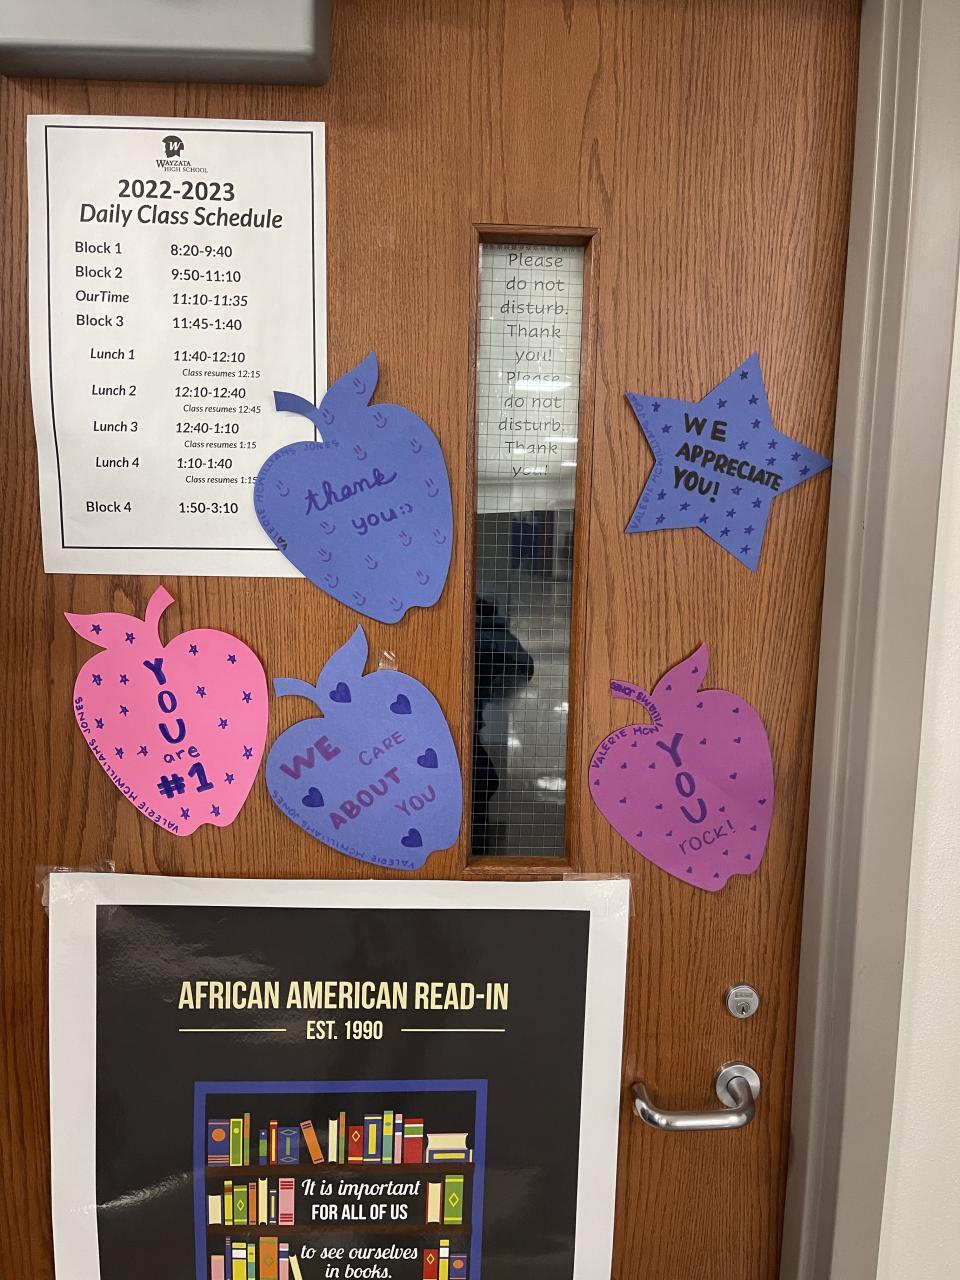 W
WAYZATA
HIGH SCHOOL
2022-2023
Daily Class Schedule
Block 1 8:20-9:40
Block 2 9:50-11:10
OurTime 11:10-11:35
Block 3 11:45-1:40
Lunch 1 11:40-12:10
Class resumes 12:15
Lunch 2 12:10-12:40
Class resumes 12:45
Lunch 3 12:40-1:10
Class resumes 1:15
Lunch 4 1:10-1:40
Class resumes 1:15
Block 4 1:50-3:10
Please
do not
disturb.
Thank
you!
Please
do not
disturb.
Thank
you!
thank
you:)
VALERIE MCWILLIAMS JONES
WE
APPRECIATE
YOU!
VALERIE MCWILLIAMS
YOU
are
#1
VALERIE MCWILLIAMS JONES
WE
CARE
ABOUT
YOU
VALERIE MCWILLIAMS JONES
YOU
rock!
VALERIE MCWILLIAMS JONES
AFRICAN AMERICAN READ-IN
EST. 1990
It is important
FOR ALL OF US
to see ourselves
in books.